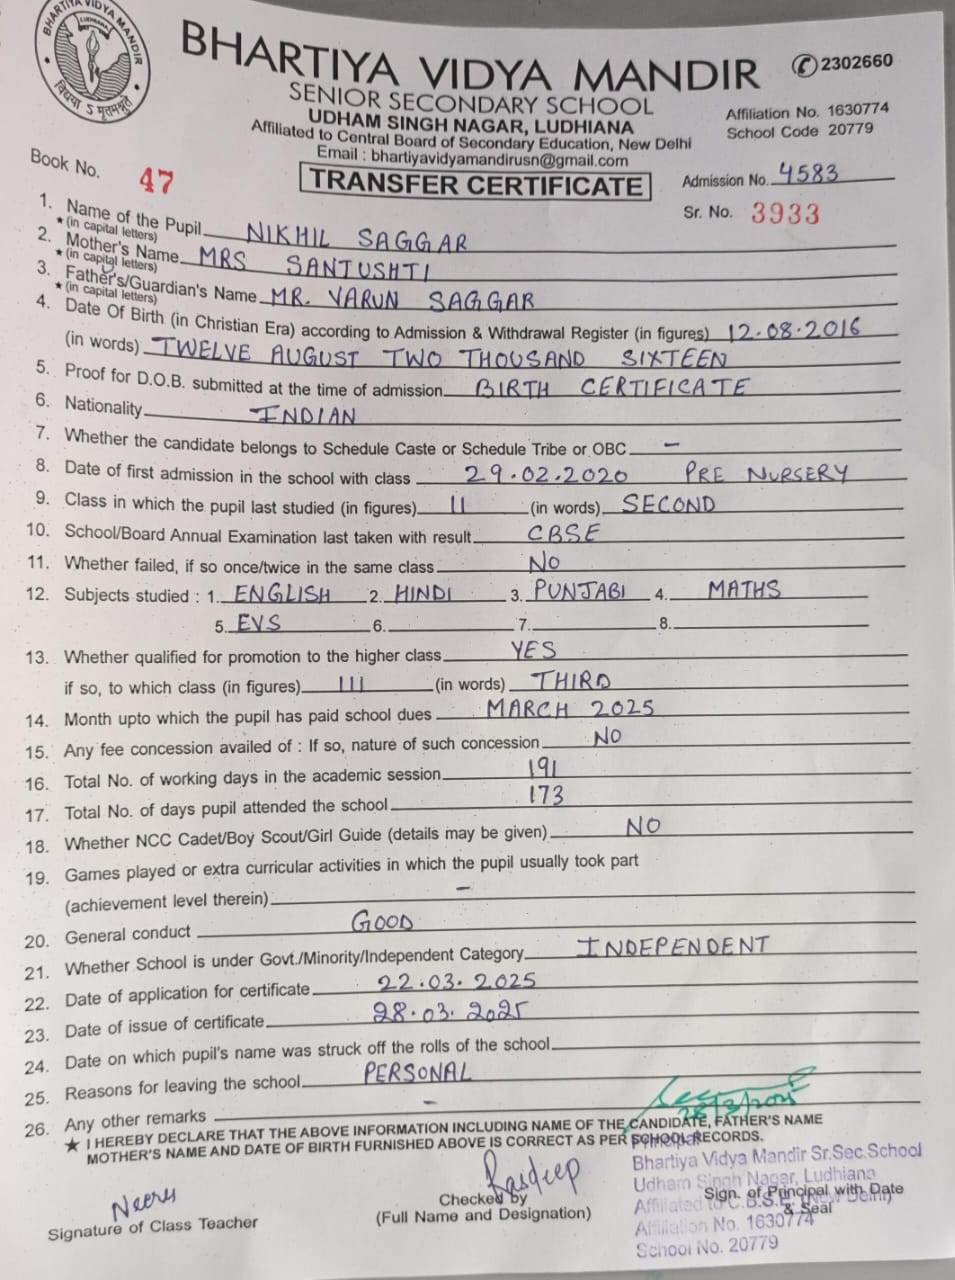 BHARTIYA VIDYA MANDIR
LUDHIANA
विद्यया ऽ मृतमश्नुते
BHARTIYA VIDYA MANDIR
2302660
SENIOR SECONDARY SCHOOL
UDHAM SINGH NAGAR, LUDHIANA
Affiliated to Central Board of Secondary Education, New Delhi
Email : bhartiyavidyamandirusn@gmail.com
Affiliation No. 1630774
School Code 20779
Book No. 47
TRANSFER CERTIFICATE
Admission No. 4583
Sr. No. 3933
1. Name of the Pupil NIKHIL SAGGAR
* (in capital letters)
2. Mother's Name MRS SANTUSHTI
* (in capital letters)
3. Father's/Guardian's Name MR. VARUN SAGGAR
* (in capital letters)
4. Date Of Birth (in Christian Era) according to Admission & Withdrawal Register (in figures) 12.08.2016
(in words) TWELVE AUGUST TWO THOUSAND SIXTEEN
5. Proof for D.O.B. submitted at the time of admission BIRTH CERTIFICATE
6. Nationality INDIAN
7. Whether the candidate belongs to Schedule Caste or Schedule Tribe or OBC -
8. Date of first admission in the school with class 29.02.2020 PRE NURSERY
9. Class in which the pupil last studied (in figures) II (in words) SECOND
10. School/Board Annual Examination last taken with result CBSE
11. Whether failed, if so once/twice in the same class NO
12. Subjects studied : 1. ENGLISH 2. HINDI 3. PUNJABI 4. MATHS
5. EVS 6. 7. 8.
13. Whether qualified for promotion to the higher class YES
if so, to which class (in figures) III (in words) THIRD
14. Month upto which the pupil has paid school dues MARCH 2025
15. Any fee concession availed of : If so, nature of such concession NO
16. Total No. of working days in the academic session 191
17. Total No. of days pupil attended the school 173
18. Whether NCC Cadet/Boy Scout/Girl Guide (details may be given) NO
19. Games played or extra curricular activities in which the pupil usually took part
(achievement level therein) -
20. General conduct GOOD
21. Whether School is under Govt./Minority/Independent Category INDEPENDENT
22. Date of application for certificate 22.03.2025
23. Date of issue of certificate 28.03.2025
24. Date on which pupil's name was struck off the rolls of the school
25. Reasons for leaving the school PERSONAL
26. Any other remarks -
28/3/2025
★ I HEREBY DECLARE THAT THE ABOVE INFORMATION INCLUDING NAME OF THE CANDIDATE, FATHER'S NAME
MOTHER'S NAME AND DATE OF BIRTH FURNISHED ABOVE IS CORRECT AS PER SCHOOL RECORDS.
Principal
Bhartiya Vidya Mandir Sr.Sec.School
Udham Singh Nagar, Ludhiana
Affiliated to C.B.S.E. (New Delhi)
Affiliation No. 1630774
School No. 20779
Neeru
Signature of Class Teacher
Rasdeep
Checked by
(Full Name and Designation)
Sign. of Principal with Date
& Seal